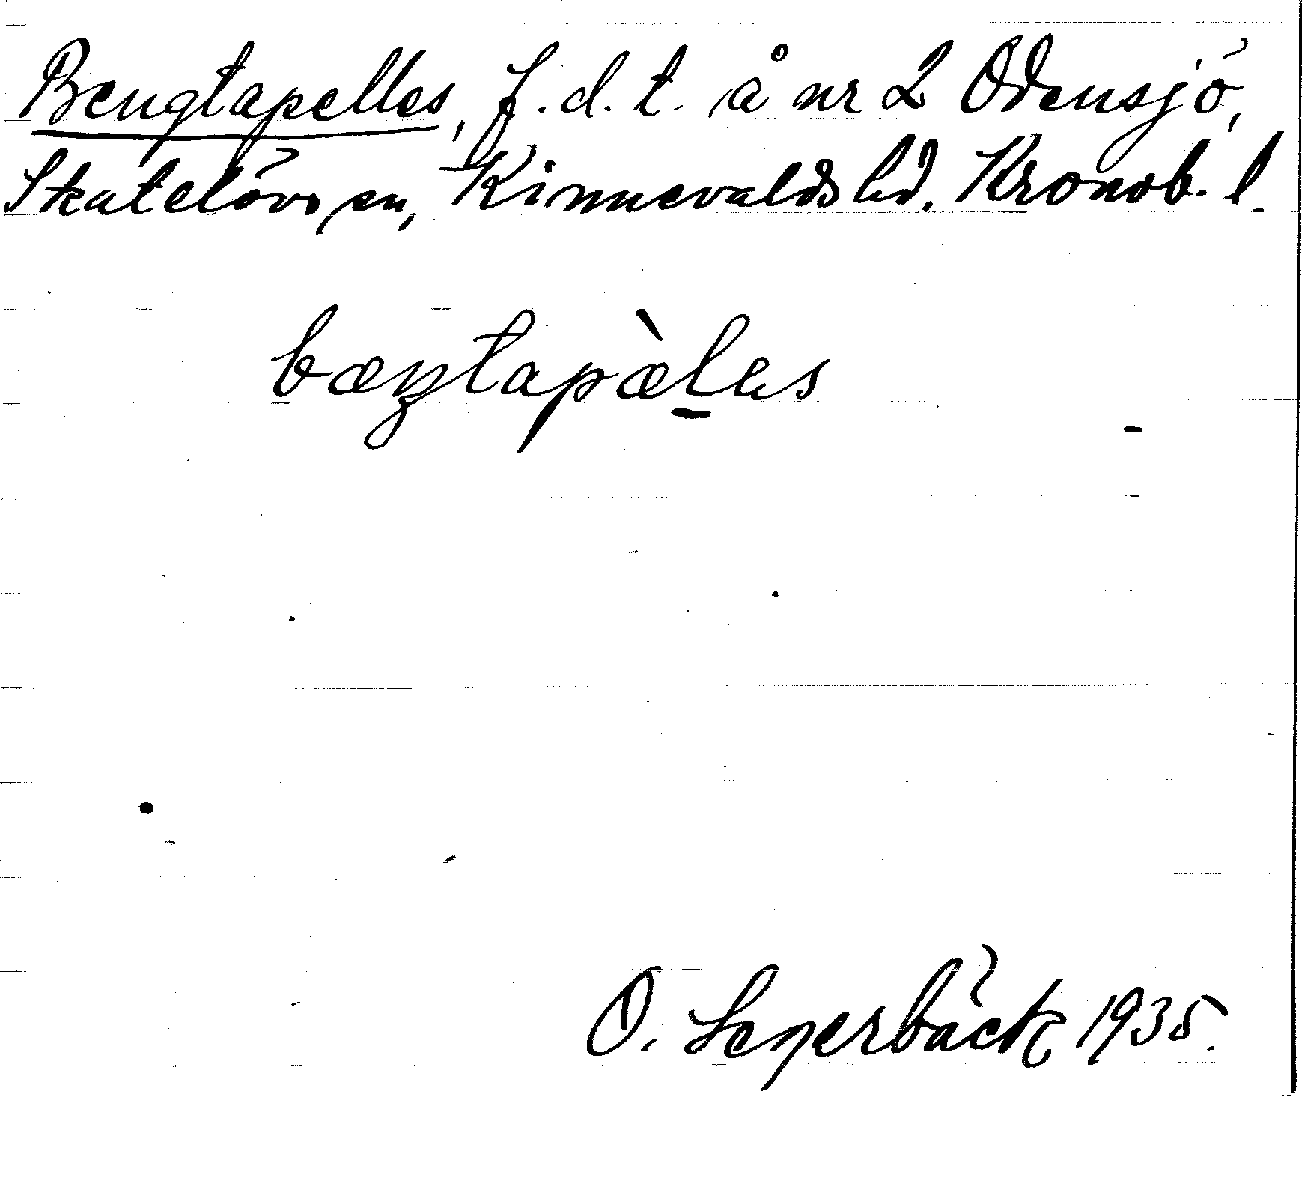 Bengtapelles, f.d.t. å nr 2 Odensjö,
Skatelövs sn, Kinnevalds hd. Kronob. l.
bæŋtapæ̀les
O. Segerbäck 1935.